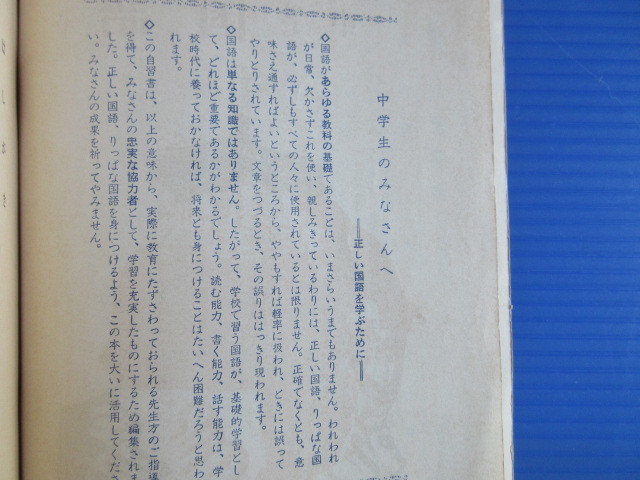 中学生のみなさんへ
══正しい国語を学ぶために══
◇国語があらゆる教科の基礎であることは、いまさらいうまでもありません。われわれ
が日常、欠かさずこれを使い、親しみきっているわりには、正しい国語、りっぱな国
語が、必ずしもすべての人々に使用されているとは限りません。正確でなくとも、意
味さえ通ずればよいというところから、ややもすれば軽率に扱われ、ときには誤って
やりとりされています。文章をつづるとき、その誤りははっきり現われます。
◇国語は単なる知識ではありません。したがって、学校で習う国語が、基礎的学習とし
て、どれほど重要であるかがわかるでしょう。読む能力、書く能力、話す能力は、学
校時代に養っておかなければ、将来とも身につけることはたいへん困難だろうと思わ
れます。
◇この自習書は、以上の意味から、実際に教育にたずさわっておられる先生方のご指導
を得て、みなさんの忠実な協力者として、学習を充実したものにするため編集されま
した。正しい国語、りっぱな国語を身につけるよう、この本を大いに活用してくださ
い。みなさんの成果を祈ってやみません。